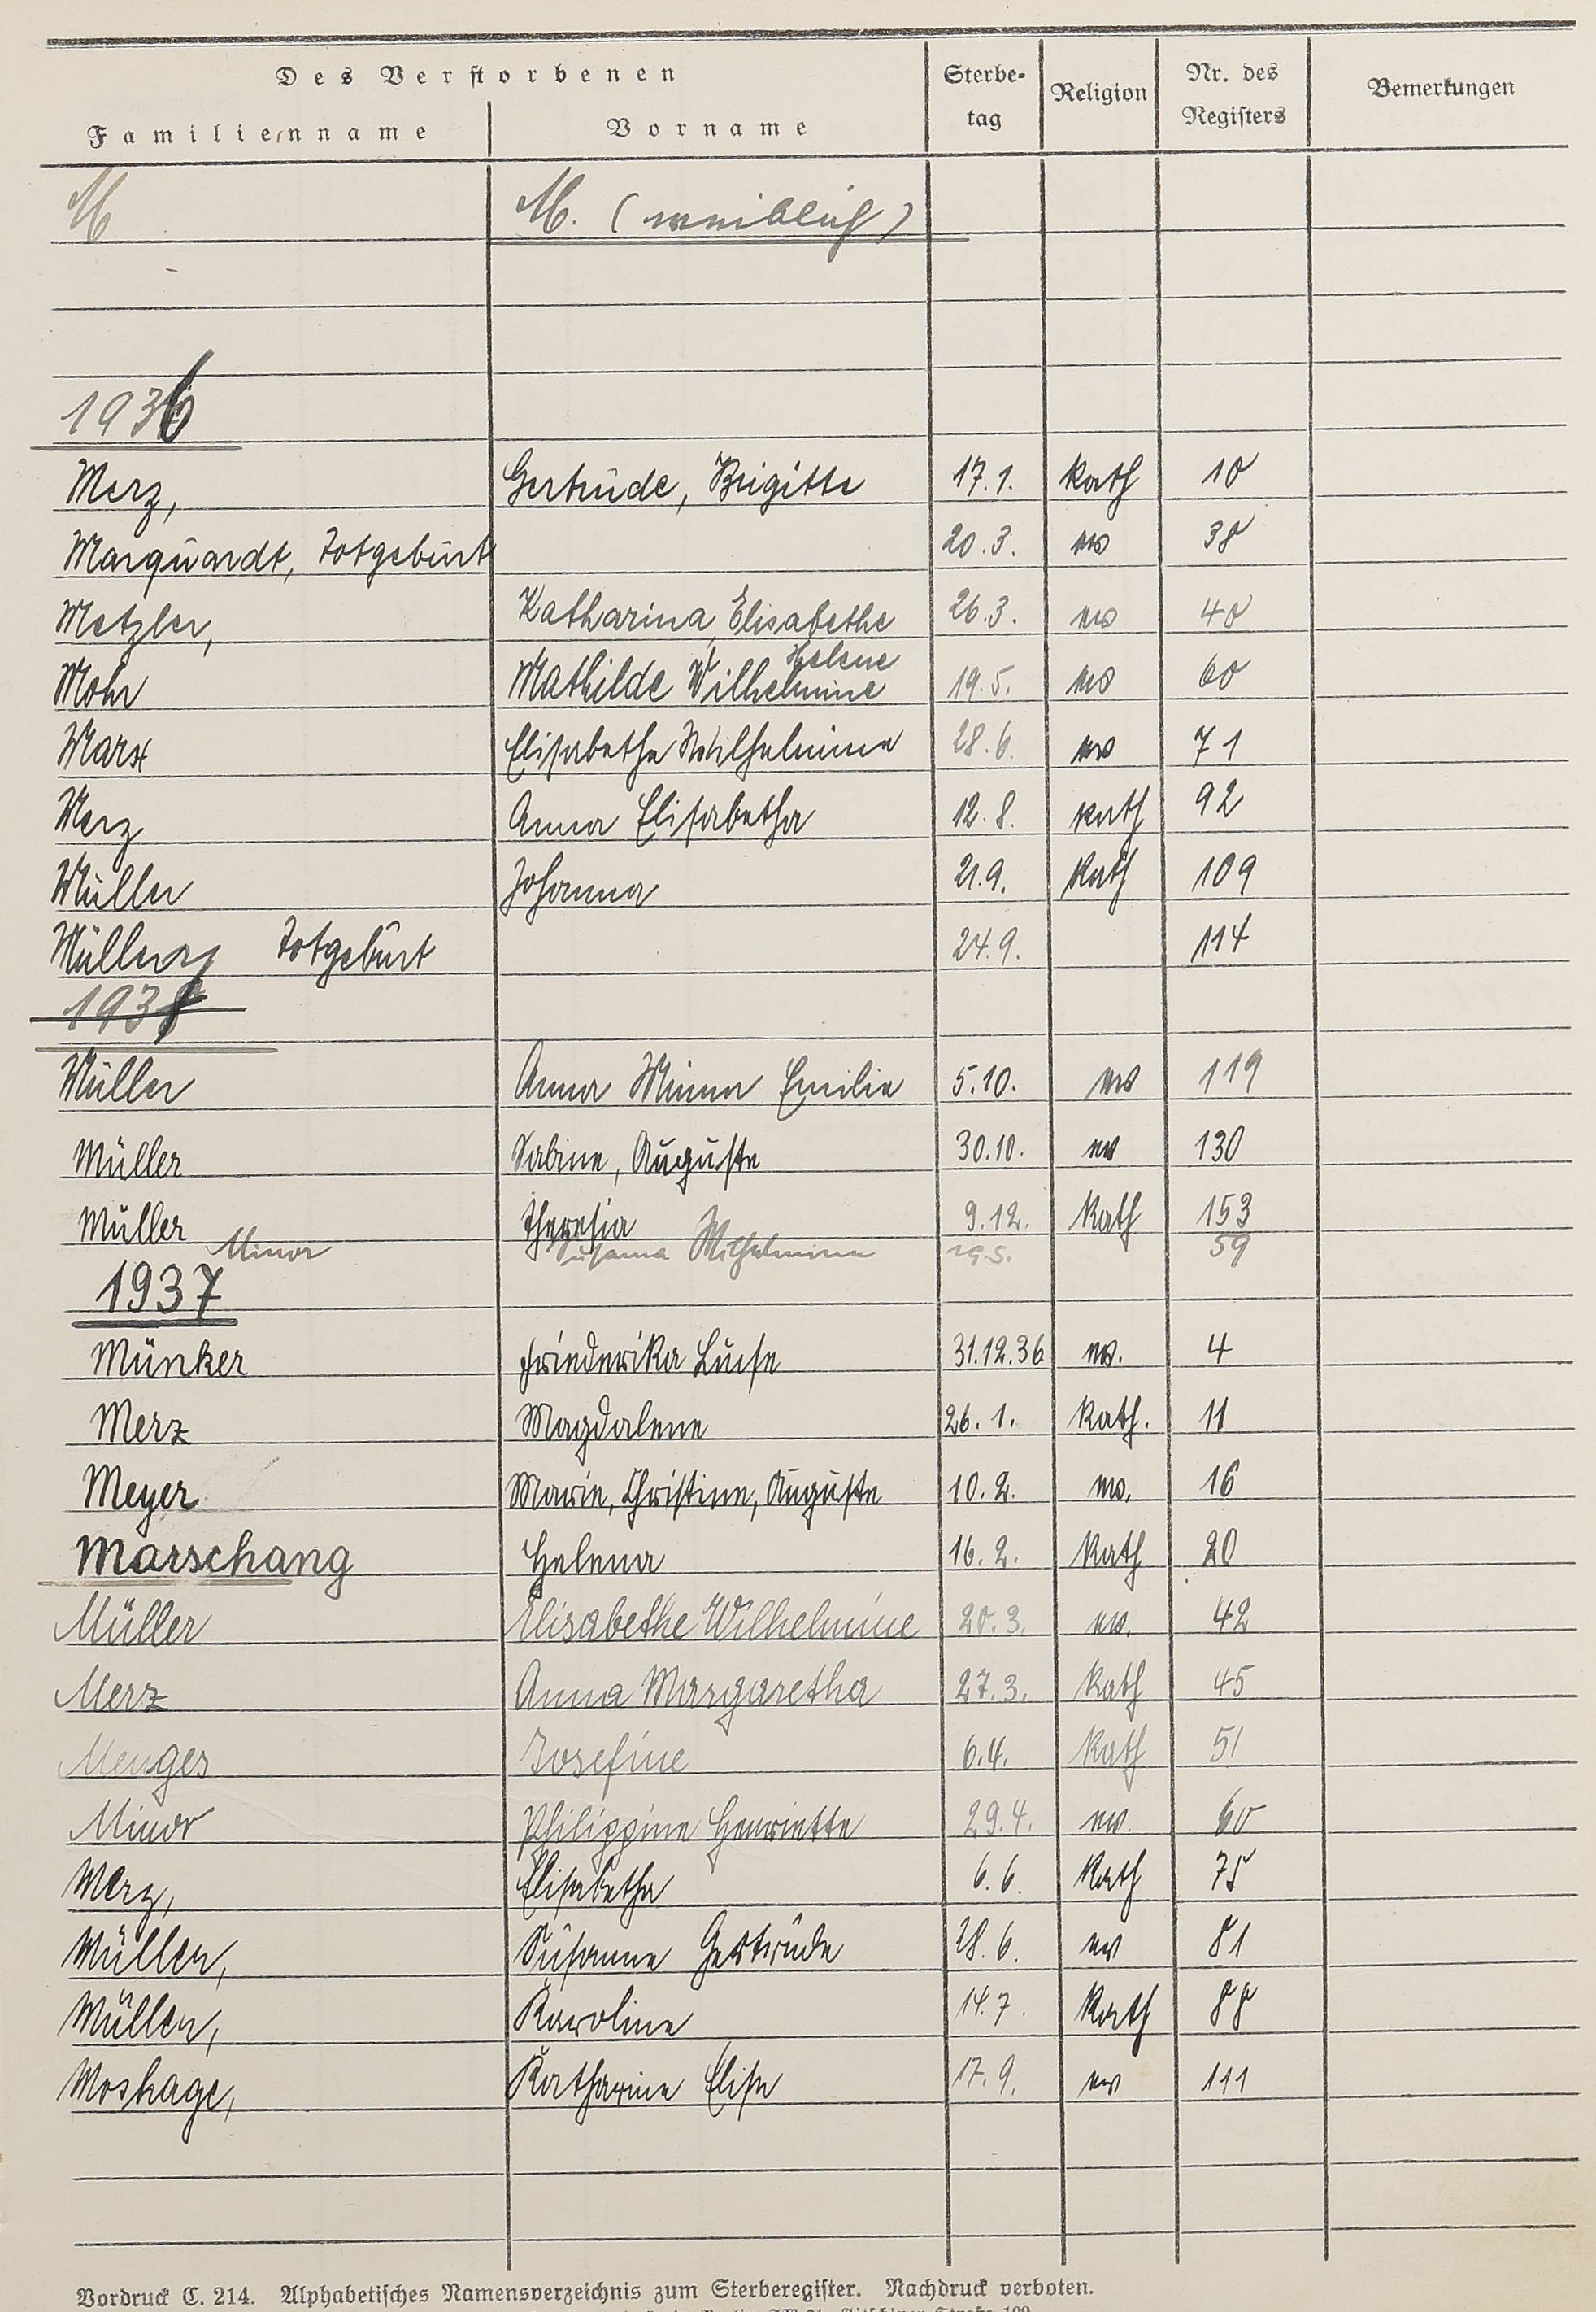 Des Verstorbenen Sterbe- Nr. des
Familienname Vorname tag Religion Registers Bemerkungen
M M. (weiblich)
1936
Merz, Gertrude, Brigitte 17.1. Kath 10
Marquardt, Totgeburt 20.3. ev 38
Metzler, Katharina, Elisabethe 26.3. ev 40
Helene
Mohr Mathilde Wilhelmine 19.5. ev 60
Marx Elisabethe Wilhelmine 28.6. ev 71
Merz Anna Elisabetha 12.8. Kath 92
Müller Johanna 21.9. Kath 109
Müller, Totgeburt 24.9. 114
Müller Anna Minna Emilie 5.10. ev 119
Müller Sabine, Auguste 30.10. ev 130
Müller Theresia 9.12. Kath 153
Minor Susanna Wilhelmine 19.5. 59
1937
Münker Friederika Luise 31.12.36 ev. 4
Merz Magdalene 26.1. Kath. 11
Meyer Marie, Christine, Auguste 10.2. ev. 16
Marschang Helena 16.2. Kath 20
Müller Elisabethe Wilhelmine 20.3. ev. 42
Merz Anna Margaretha 27.3. Kath 45
Menges Josefine 6.4. Kath 51
Minor Philippine Henriette 29.4. ev. 60
Merz, Elisabetha 6.6. Kath 75
Müller, Susanne Gertrude 28.6. ev 81
Müller, Karoline 14.7. Kath 88
Moshage, Katharine Elise 17.9. ev 111
Vordruck C. 214. Alphabetisches Namensverzeichnis zum Sterberegister. Nachdruck verboten.